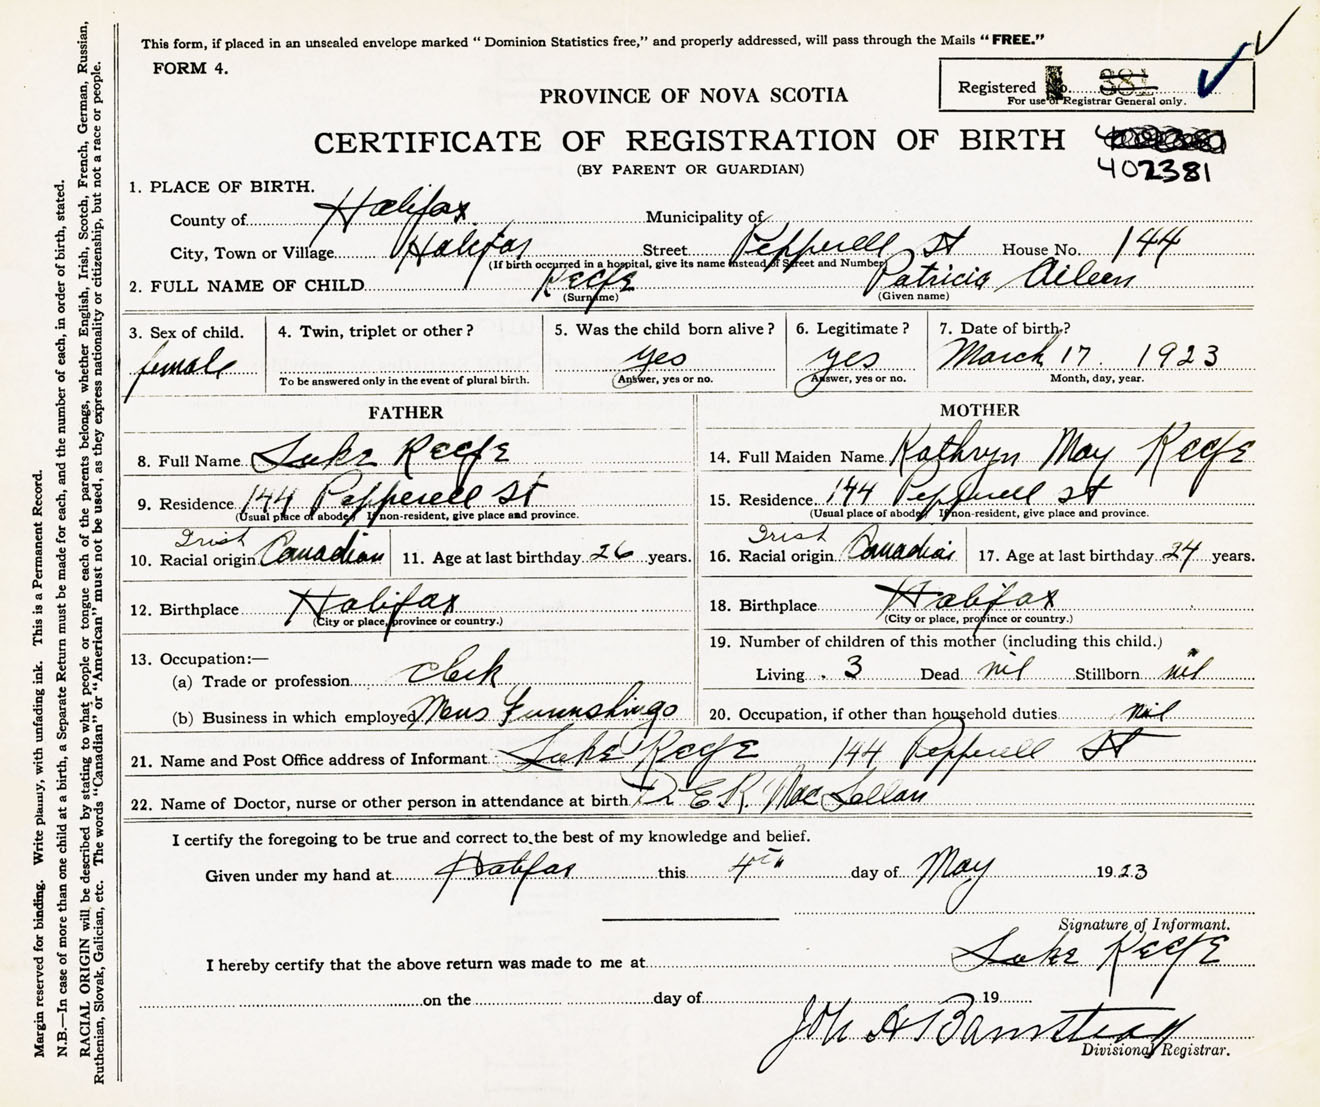 This form, if placed in an unsealed envelope marked "Dominion Statistics free," and properly addressed, will pass through the Mails "FREE."
FORM 4.
Registered No. 381
For use of Registrar General only.
PROVINCE OF NOVA SCOTIA
CERTIFICATE OF REGISTRATION OF BIRTH
402381
(BY PARENT OR GUARDIAN)
1. PLACE OF BIRTH.
County of Halifax Municipality of
City, Town or Village Halifax Street Pepperell St House No. 144
(If birth occurred in a hospital, give its name instead of Street and Number)
2. FULL NAME OF CHILD Keefe Patricia Aileen
(Surname) (Given name)
3. Sex of child. 4. Twin, triplet or other? 5. Was the child born alive? 6. Legitimate? 7. Date of birth?
female yes yes March 17. 1923
To be answered only in the event of plural birth. Answer, yes or no. Answer, yes or no. Month, day, year.
FATHER
8. Full Name Luke Keefe
9. Residence 144 Pepperell St
(Usual place of abode) If non-resident, give place and province.
Irish
10. Racial origin Canadian 11. Age at last birthday 26 years.
12. Birthplace Halifax
(City or place, province or country.)
13. Occupation:—
(a) Trade or profession clerk
(b) Business in which employed Mens Furnishings
MOTHER
14. Full Maiden Name Kathryn May Keefe
15. Residence 144 Pepperell St
(Usual place of abode) If non-resident, give place and province.
Irish
16. Racial origin Canadian 17. Age at last birthday 24 years.
18. Birthplace Halifax
(City or place, province or country.)
19. Number of children of this mother (including this child.)
Living 3 Dead nil Stillborn nil
20. Occupation, if other than household duties nil
21. Name and Post Office address of Informant Luke Keefe 144 Pepperell St
22. Name of Doctor, nurse or other person in attendance at birth Dr E.R. MacLellan
I certify the foregoing to be true and correct to the best of my knowledge and belief.
Given under my hand at Halifax this 4th day of May 1923
Signature of Informant.
Luke Keefe
I hereby certify that the above return was made to me at
on the day of 19
Divisional Registrar.
Margin reserved for binding. Write plainly, with unfading ink. This is a Permanent Record.
N.B.—In case of more than one child at a birth, a Separate Return must be made for each, and the number of each, in order of birth, stated.
RACIAL ORIGIN will be described by stating to what people or tongue each of the parents belongs, whether English, Irish, Scotch, French, German, Russian,
Ruthenian, Slovak, Galician, etc. The words "Canadian" or "American" must not be used, as they express nationality or citizenship, but not a race or people.